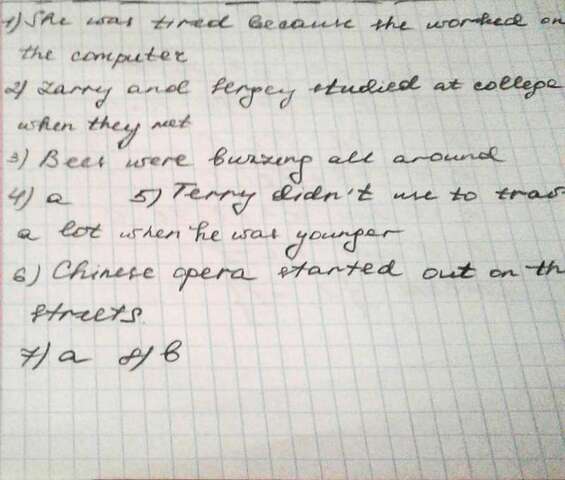 1) She was tired because the worked on
the computer
2) Larry and Sergey studied at college
when they met
3) Bees were buzzing all around
4) a 5) Terry didn't use to trav
a lot when he was younger
6) Chinese opera started out on th
streets.
7) a 8) b